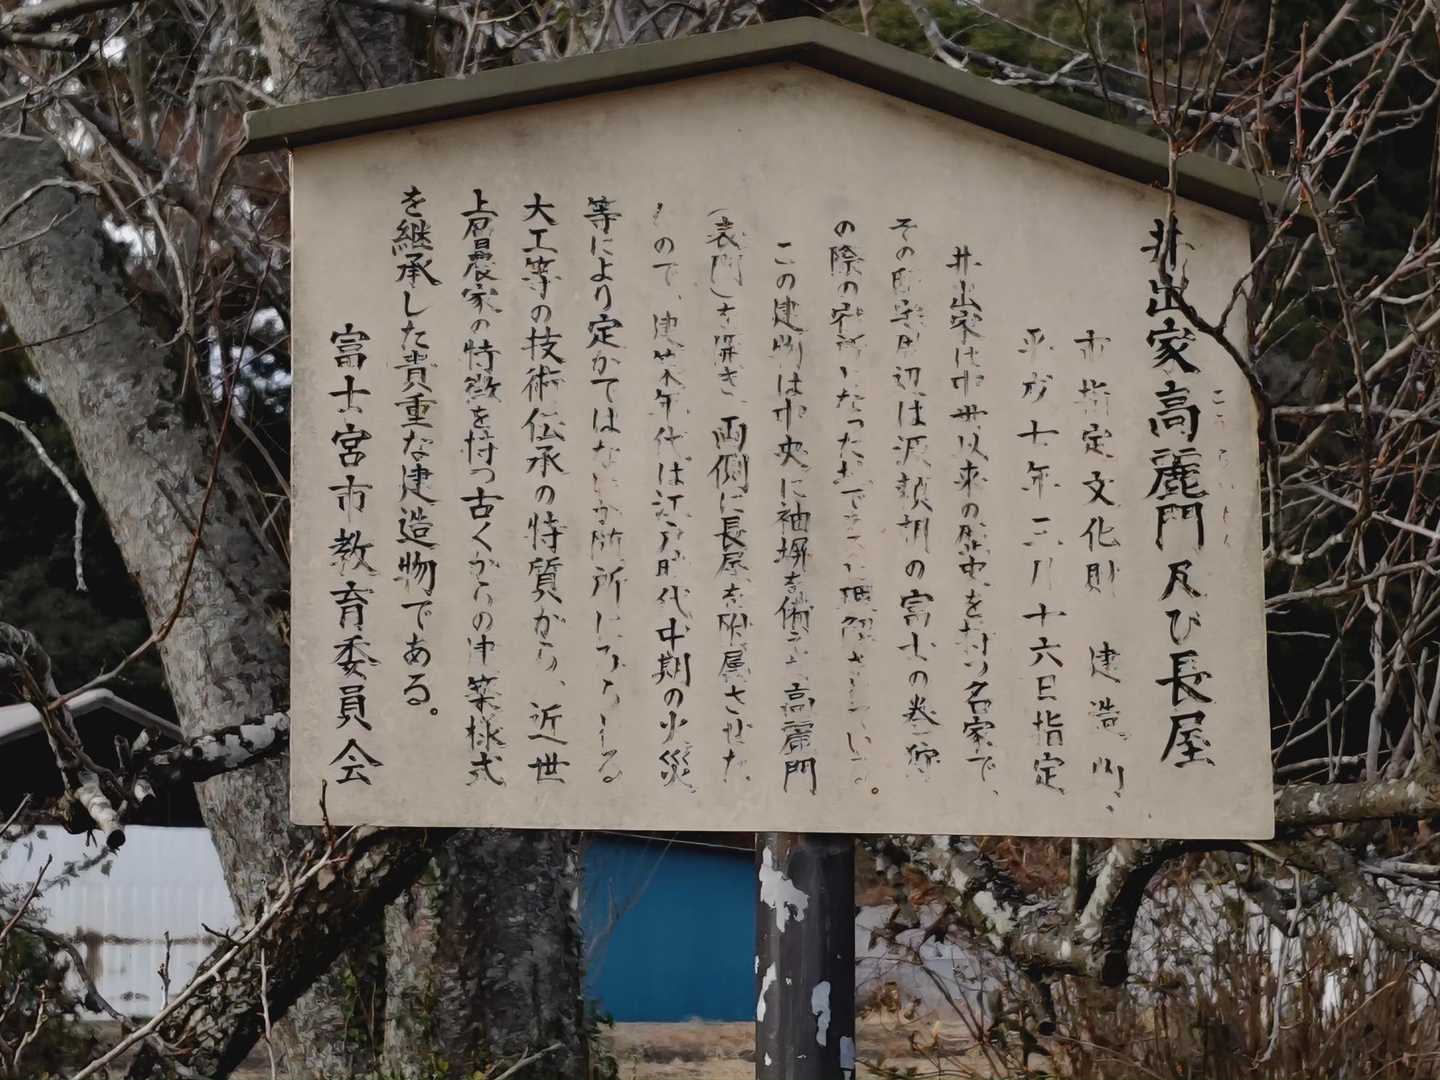 井出家高麗門及び長屋
こうらいもん
市指定文化財 建造
平成十年三月十六日指定
井出家は中世以来の歴史を持つ名家で、
その 辺は源頼朝の富士の巻狩
の際の宿所になった
この建物は中央に袖塀 高麗門
(表門)を開き、両側に長屋を附属させた
ので、建築年代は江戸時代中期の火災
等により定かではな
大工等の技術伝承の特質から、近世
上層農家の特徴を持つ古くからの建築様式
を継承した貴重な建造物である。
富士宮市教育委員会